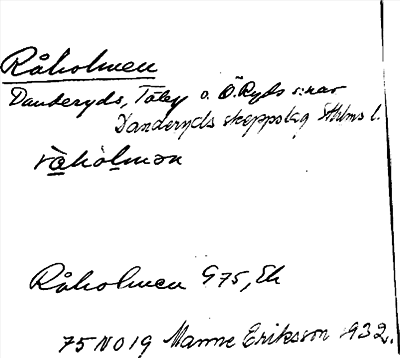 Råholmen
Danderyds, Täby o. Ö. Ryds s:nar
Danderyds skeppslag Sthlms l.
råhòlmən
Råholmen G75, Ek
75 NO 19 Manne Eriksson 1932.